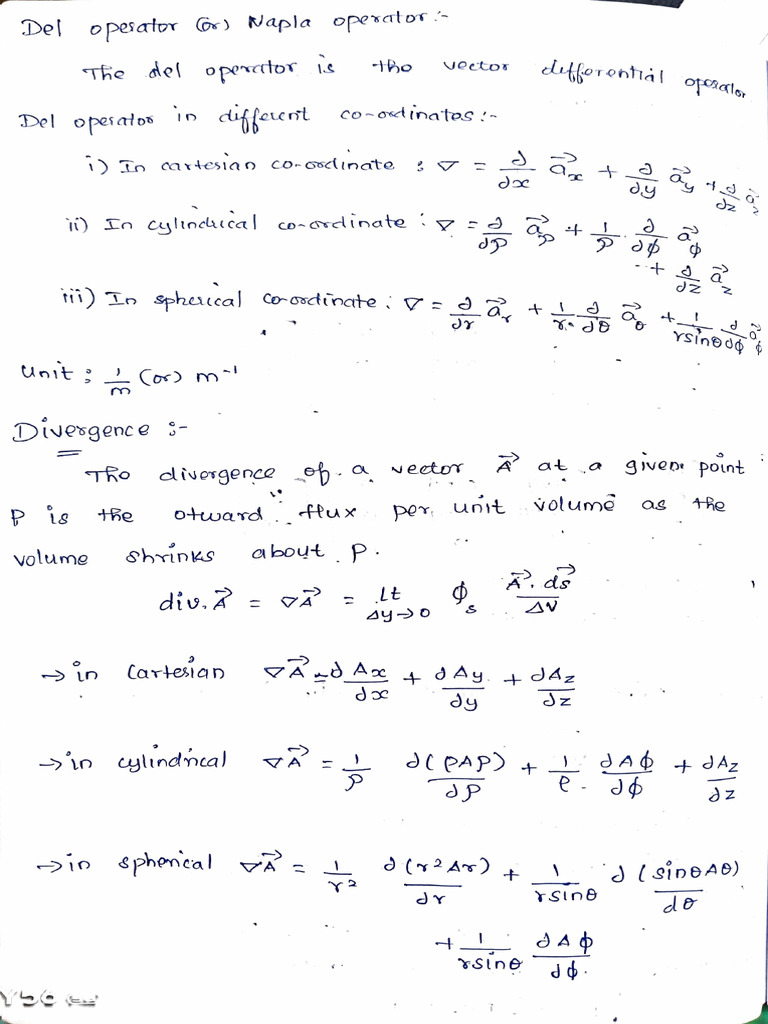 Del operator (or) Napla operator:-
The del operator is the vector differential operator
Del operator in different co-ordinates:-
i) In cartesian co-ordinate : ∇ = ∂/∂x a⃗x + ∂/∂y a⃗y + ∂/∂z a⃗z
ii) In cylindrical co-ordinate : ∇ = ∂/∂ρ a⃗ρ + 1/ρ ∂/∂ϕ a⃗ϕ
+ ∂/∂z a⃗z
iii) In spherical co-ordinate : ∇ = ∂/∂r a⃗r + 1/r ∂/∂θ a⃗θ + 1/rsinθ ∂/∂ϕ a⃗ϕ
Unit : 1/m (or) m⁻¹
Divergence :-
The divergence of a vector A⃗ at a given point
P is the otward flux per unit volume as the
volume shrinks about P.
div. A⃗ = ∇A⃗ = Lt Δy→0 ϕs A⃗. ds⃗/ΔV
→ in Cartesian ∇A⃗ = ∂Ax/∂x + ∂Ay/∂y + ∂Az/∂z
→ in cylindrical ∇A⃗ = 1/ρ ∂(ρAρ)/∂ρ + 1/ρ ∂Aϕ/∂ϕ + ∂Az/∂z
→ in spherical ∇A⃗ = 1/r² ∂(r²Ar)/∂r + 1/rsinθ ∂(sinθAθ)/∂θ
+ 1/rsinθ ∂Aϕ/∂ϕ.